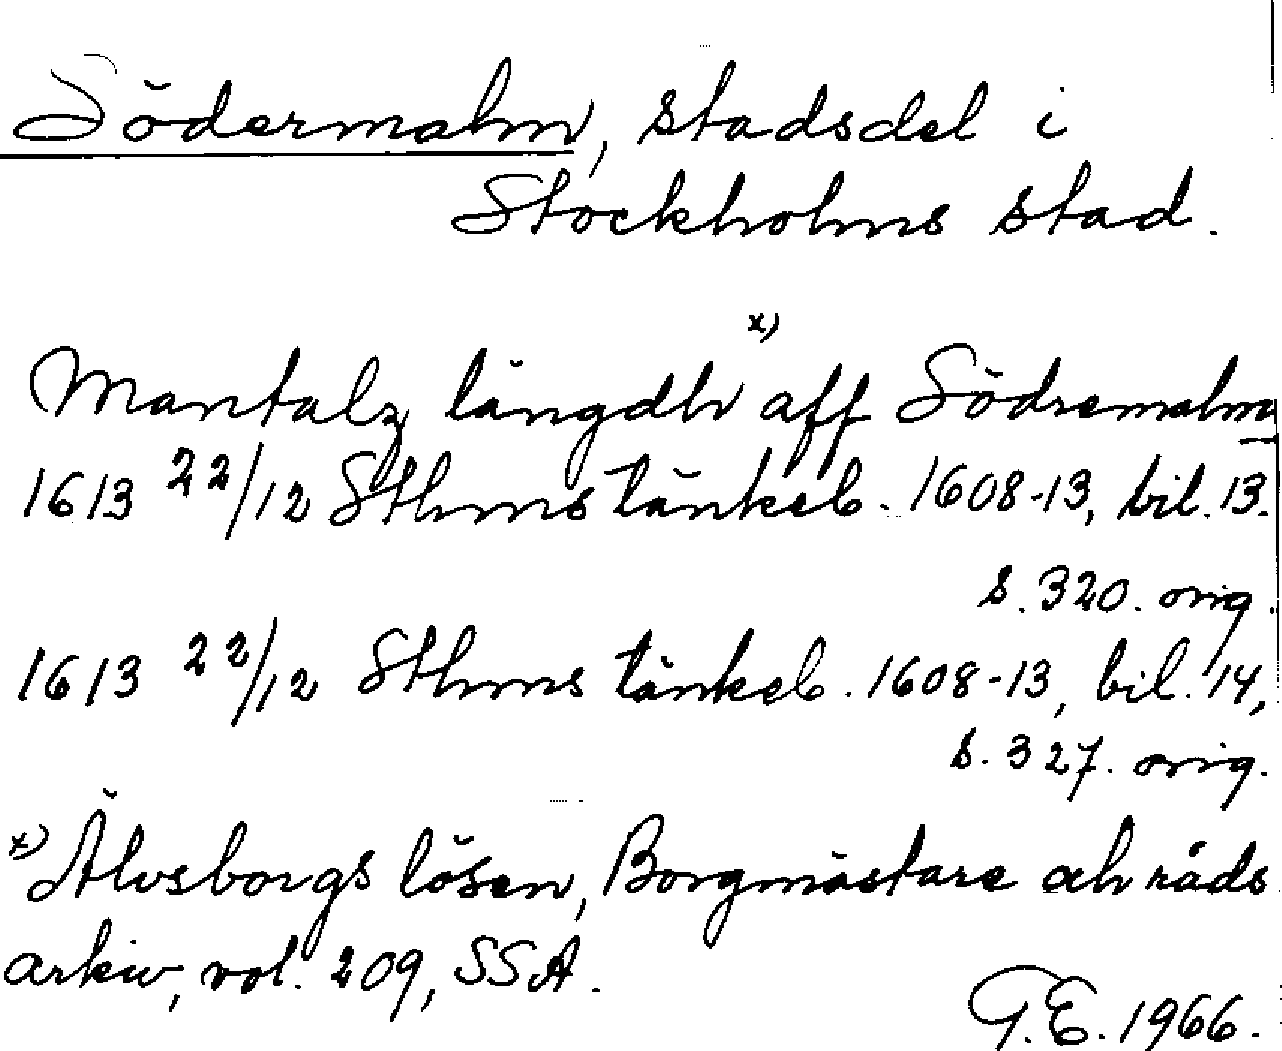 Södermalm, stadsdel i
Stockholms stad.
Mantalz längdh x) aff Södremalm
1613 22/12 Sthms tänkeb. 1608-13, bil. 13.
s. 320. orig.
1613 22/12 Sthms tänkeb. 1608-13, bil. 14,
s. 327. orig.
x) Älvsborgs lösen, Borgmästare och råds
arkiv, vol. 209, SSA.
G.E. 1966.